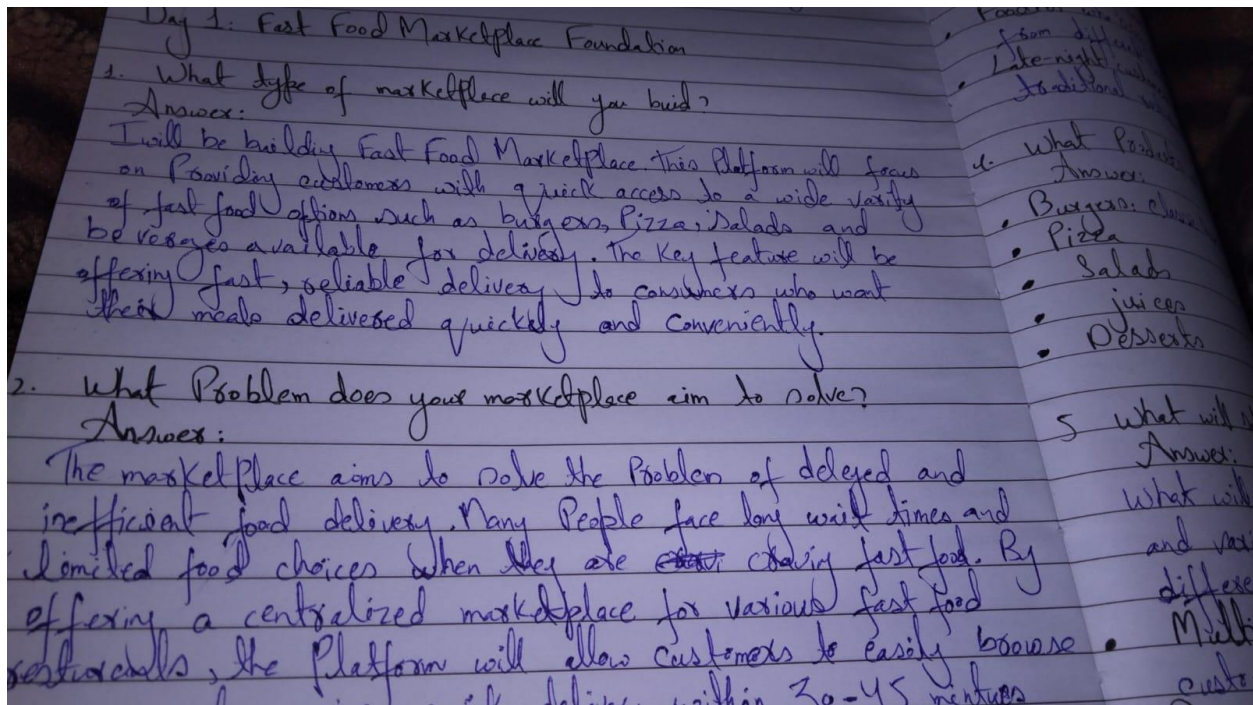 Day 1: Fast Food Marketplace Foundation
1. What type of marketplace will you buid?
Answer:
I will be building Fast Food Marketplace. This Platform will focus
on Providing customers with quick access to a wide varity
of fast food options such as burgers, Pizza, Salads and
beverages available for delivery. The Key feature will be
offering fast, reliable delivery to consumers who want
their meals delivered quickly and conveniently.
2. What Problem does your marketplace aim to solve?
Answer:
The marketplace aims to solve the Problem of deleyed and
inefficient food delivery. Many People face long wait times and
limited food choices when they are craving fast food. By
offering a centralized marketplace for various fast food
the Platform will allow customers to easily browse
within 30-45
from
Late-night
traditional
4. What
Answer:
• Burgers:
• Pizza
• Salads
• juices
• Desserts
5 What will
Answer:
What will
and